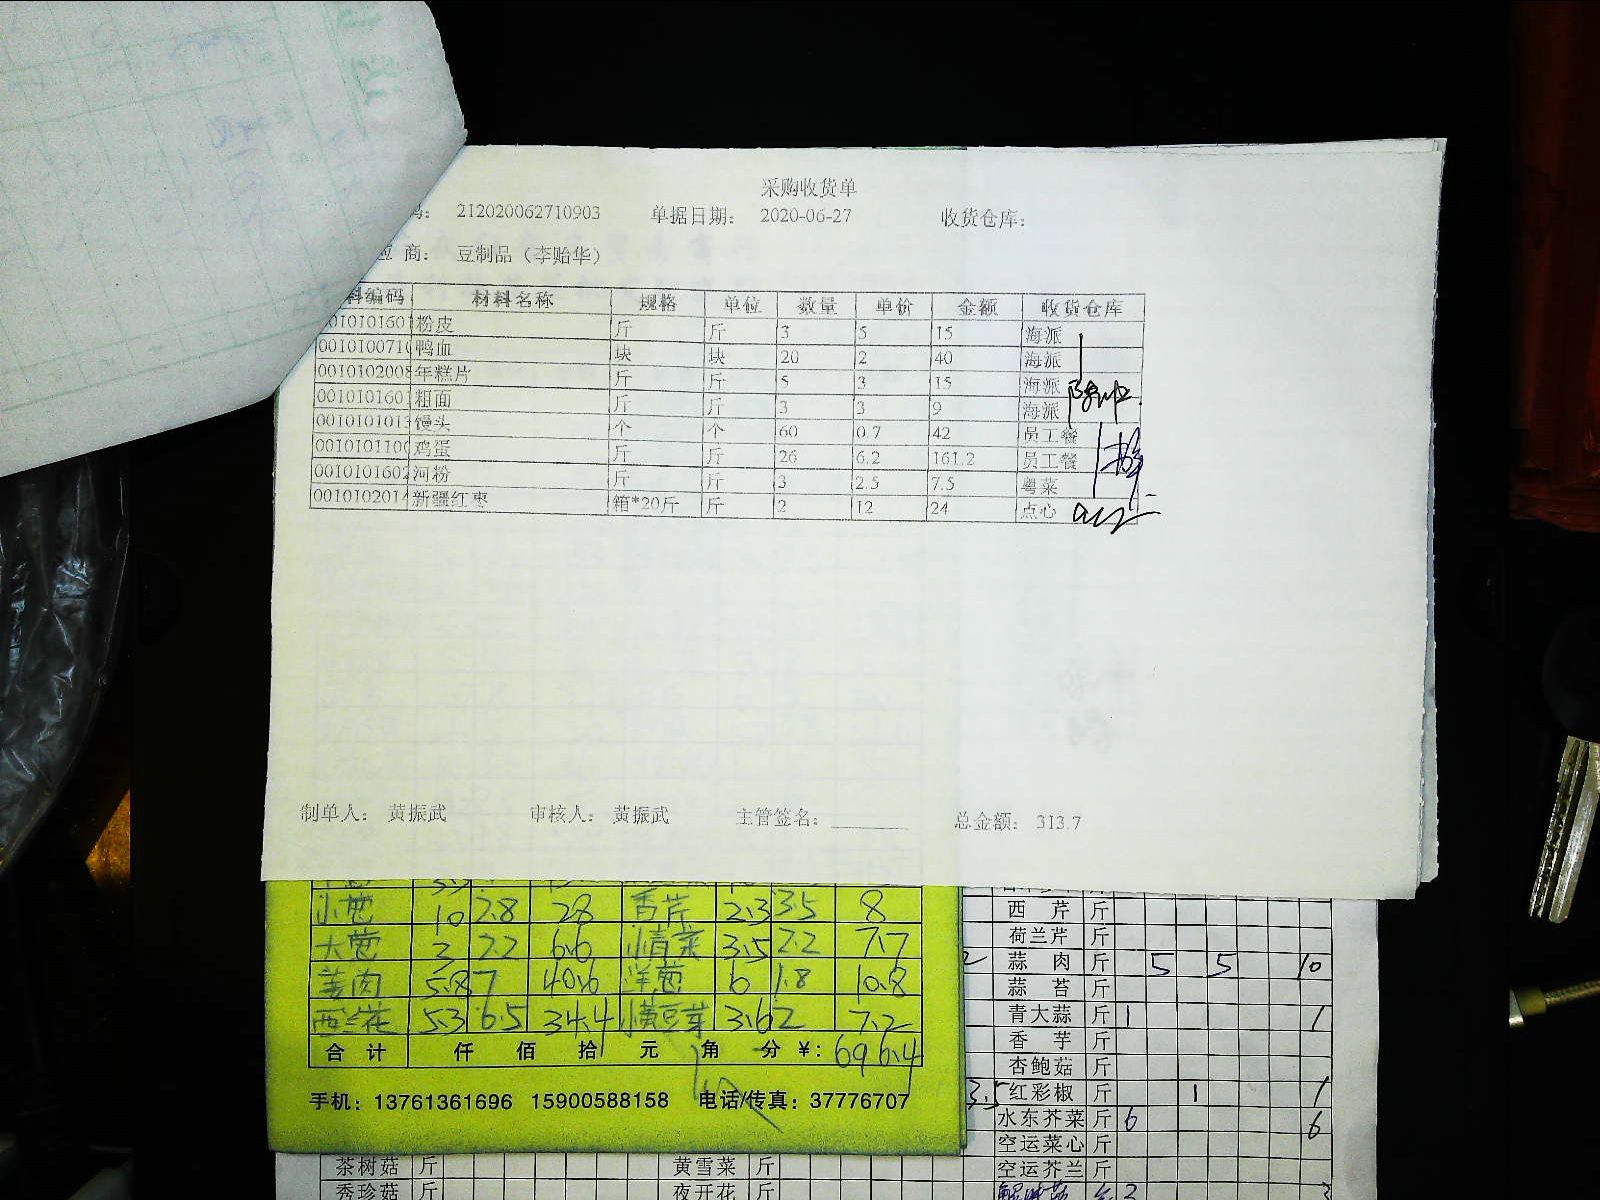 采购收货单
码： 212020062710903 单据日期： 2020-06-27 收货仓库：
应 商： 豆制品（李贻华）
料编码 材料名称 规格 单位 数量 单价 金额 收货仓库
粉皮 斤 斤 3 5 15 海派
鸭血 块 块 20 2 40 海派
0010102008 年糕片 斤 斤 5 3 15 海派
0010101601 粗面 斤 斤 3 3 9 海派
0010101013 馒头 个 个 60 0.7 42 员工餐
0010101100 鸡蛋 斤 斤 26 6.2 161.2 员工餐
0010101602 河粉 斤 斤 3 2.5 7.5 粤菜
0010102014 新疆红枣 箱*20斤 斤 2 12 24 点心
制单人： 黄振武 审核人： 黄振武 主管签名： 总金额： 313.7
小葱 10 2.8 28 香芹 2.3 3.5 8
大葱 3 2.2 6.6 小青菜 3.5 2.2 7.7
姜肉 5.8 7 40.6 洋葱 6 1.8 10.8
西兰花 5.3 6.5 34.4 小黄豆芽 3.6 2 7.2
合 计 仟 佰 拾 元 角 分 ¥: 696.4
手机：13761361696 15900588158 电话/传真：37776707
西 芹 斤
荷兰芹 斤
蒜 肉 斤 5 5 10
蒜 苔 斤
青大蒜 斤 1 1
香 芋 斤
杏鲍菇 斤
3.5 红彩椒 斤 1 1
水东芥菜 斤 6 6
空运菜心 斤
茶树菇 斤 黄雪菜 斤 空运芥兰 斤
秀珍菇 斤 夜开花 斤